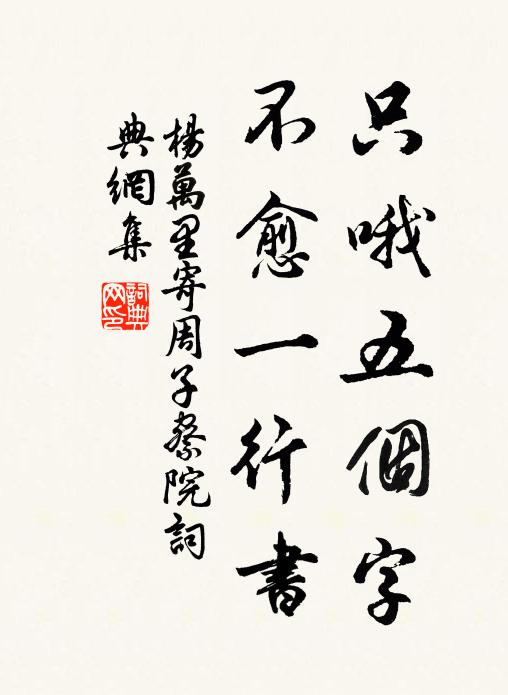 只哦五個字
不愈一行書
楊萬里寄周子察院詞
典網集
詞典
网印